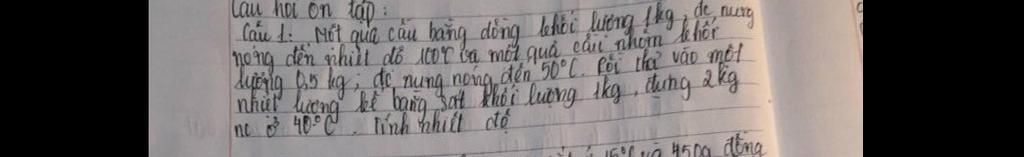 Câu hỏi ôn tập:
Câu 1: Một quả cầu bằng đồng khối lượng 1kg, đc nung
nóng đến nhiệt độ 100°C và một quả cầu nhôm khối
lượng 0,5 kg, đc nung nóng đến 50°C. Rồi thả vào một
nhiệt lượng kế bằng sắt khối lượng 1kg, đựng 2kg
nc ở 40°C. Tính nhiệt độ
15°C và 450g đồng